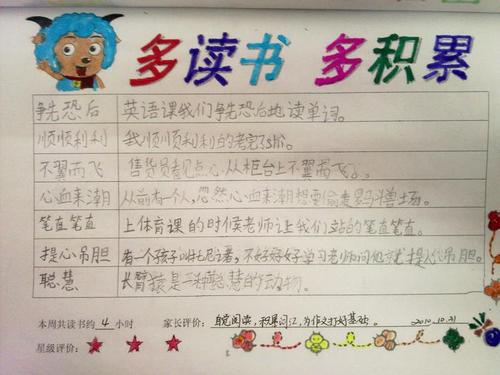 多读书 多积累
争先恐后 英语课我们争先恐后地读单词。
顺顺利利 我顺顺利利的考完了
不翼而飞 售货员看见点心从柜台上不翼而飞了。
心血来潮 从前有一个人,忽然心血来潮想到偷走罗马斗兽场。
笔直笔直 上体育课的时侯老师让我们站的笔直笔直。
提心吊胆 有一个孩子 不好好学习老师问他就提心吊胆。
聪慧 长臂猿是一种聪慧的动物。
本周共读书约 4 小时 家长评价: 自觉阅读,积累词汇,为作文打好基础。 2010.10.21
星级评价: